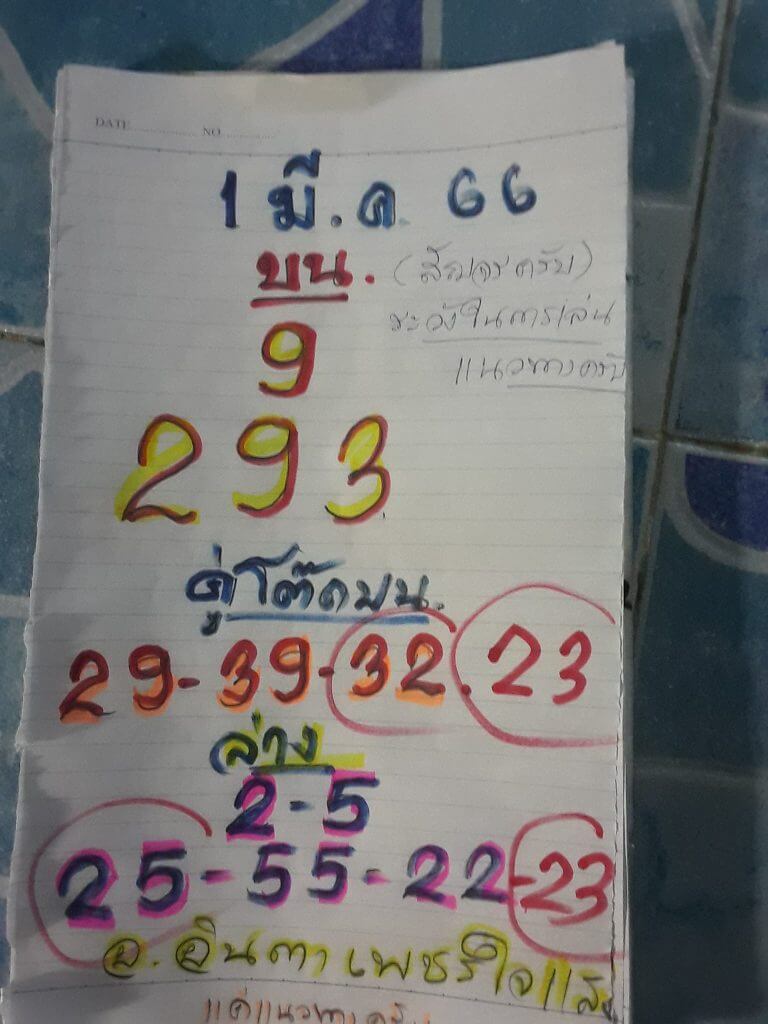 DATE ............... NO ...............
1 มี.ค. 66
บน. (สัญจรครับ)
ระวังในการเล่น
แนวทางครับ
9
293
คู่โต๊ดบน.
29-39-32.23
ล่าง
2-5
25-55-22-23
อ. อินตา เพชร
แค่แนวทางครับ